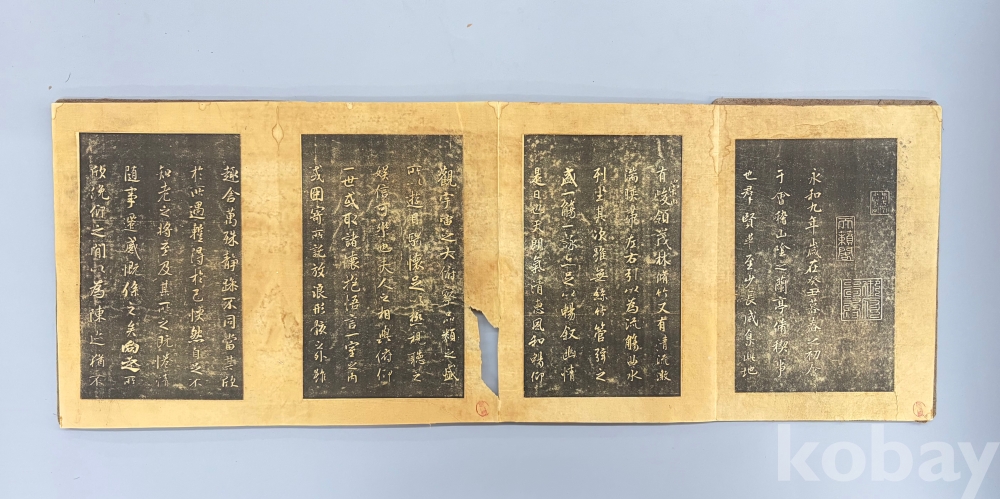 永和九年歲在癸丑暮春之初會
于會稽山陰之蘭亭脩禊事
也羣賢畢至少長咸集此地
天籟閣
崇山
有峻領茂林脩竹又有清流激
湍暎帶左右引以為流觴曲水
列坐其次雖無絲竹管弦之
盛一觴一詠亦足以暢叙幽情
是日也天朗氣清惠風和暢仰
觀宇宙之大俯察品類之盛
所以遊目騁懷足以極視聽之
娛信可樂也夫人之相與俯仰
一世或取諸懷抱悟言一室之內
或因寄所託放浪形骸之外雖
趣舍萬殊靜躁不同當其欣
於所遇暫得於己怏然自足不
知老之將至及其所之既惓情
隨事遷感慨係之矣向之所
欣俛仰之間以為陳迹猶不
kobay